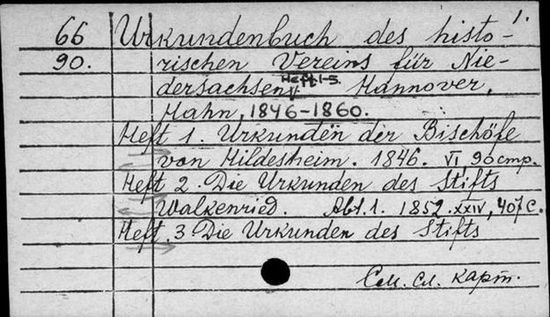 1.
66 Urkundenbuch des histo-
90. rischen Vereins für Nie-
dersachsen. Heft 1-5. Hannover,
Hahn, 1846-1860.
Heft 1. Urkunden der Bischöfe
von Hildesheim. 1846. VI 90 стр.
Heft 2. Die Urkunden des Stifts
Walkenried. Abt. 1. 1852. XXIV, 407 С.
Heft. 3 Die Urkunden des Stifts
См. сл. карт.